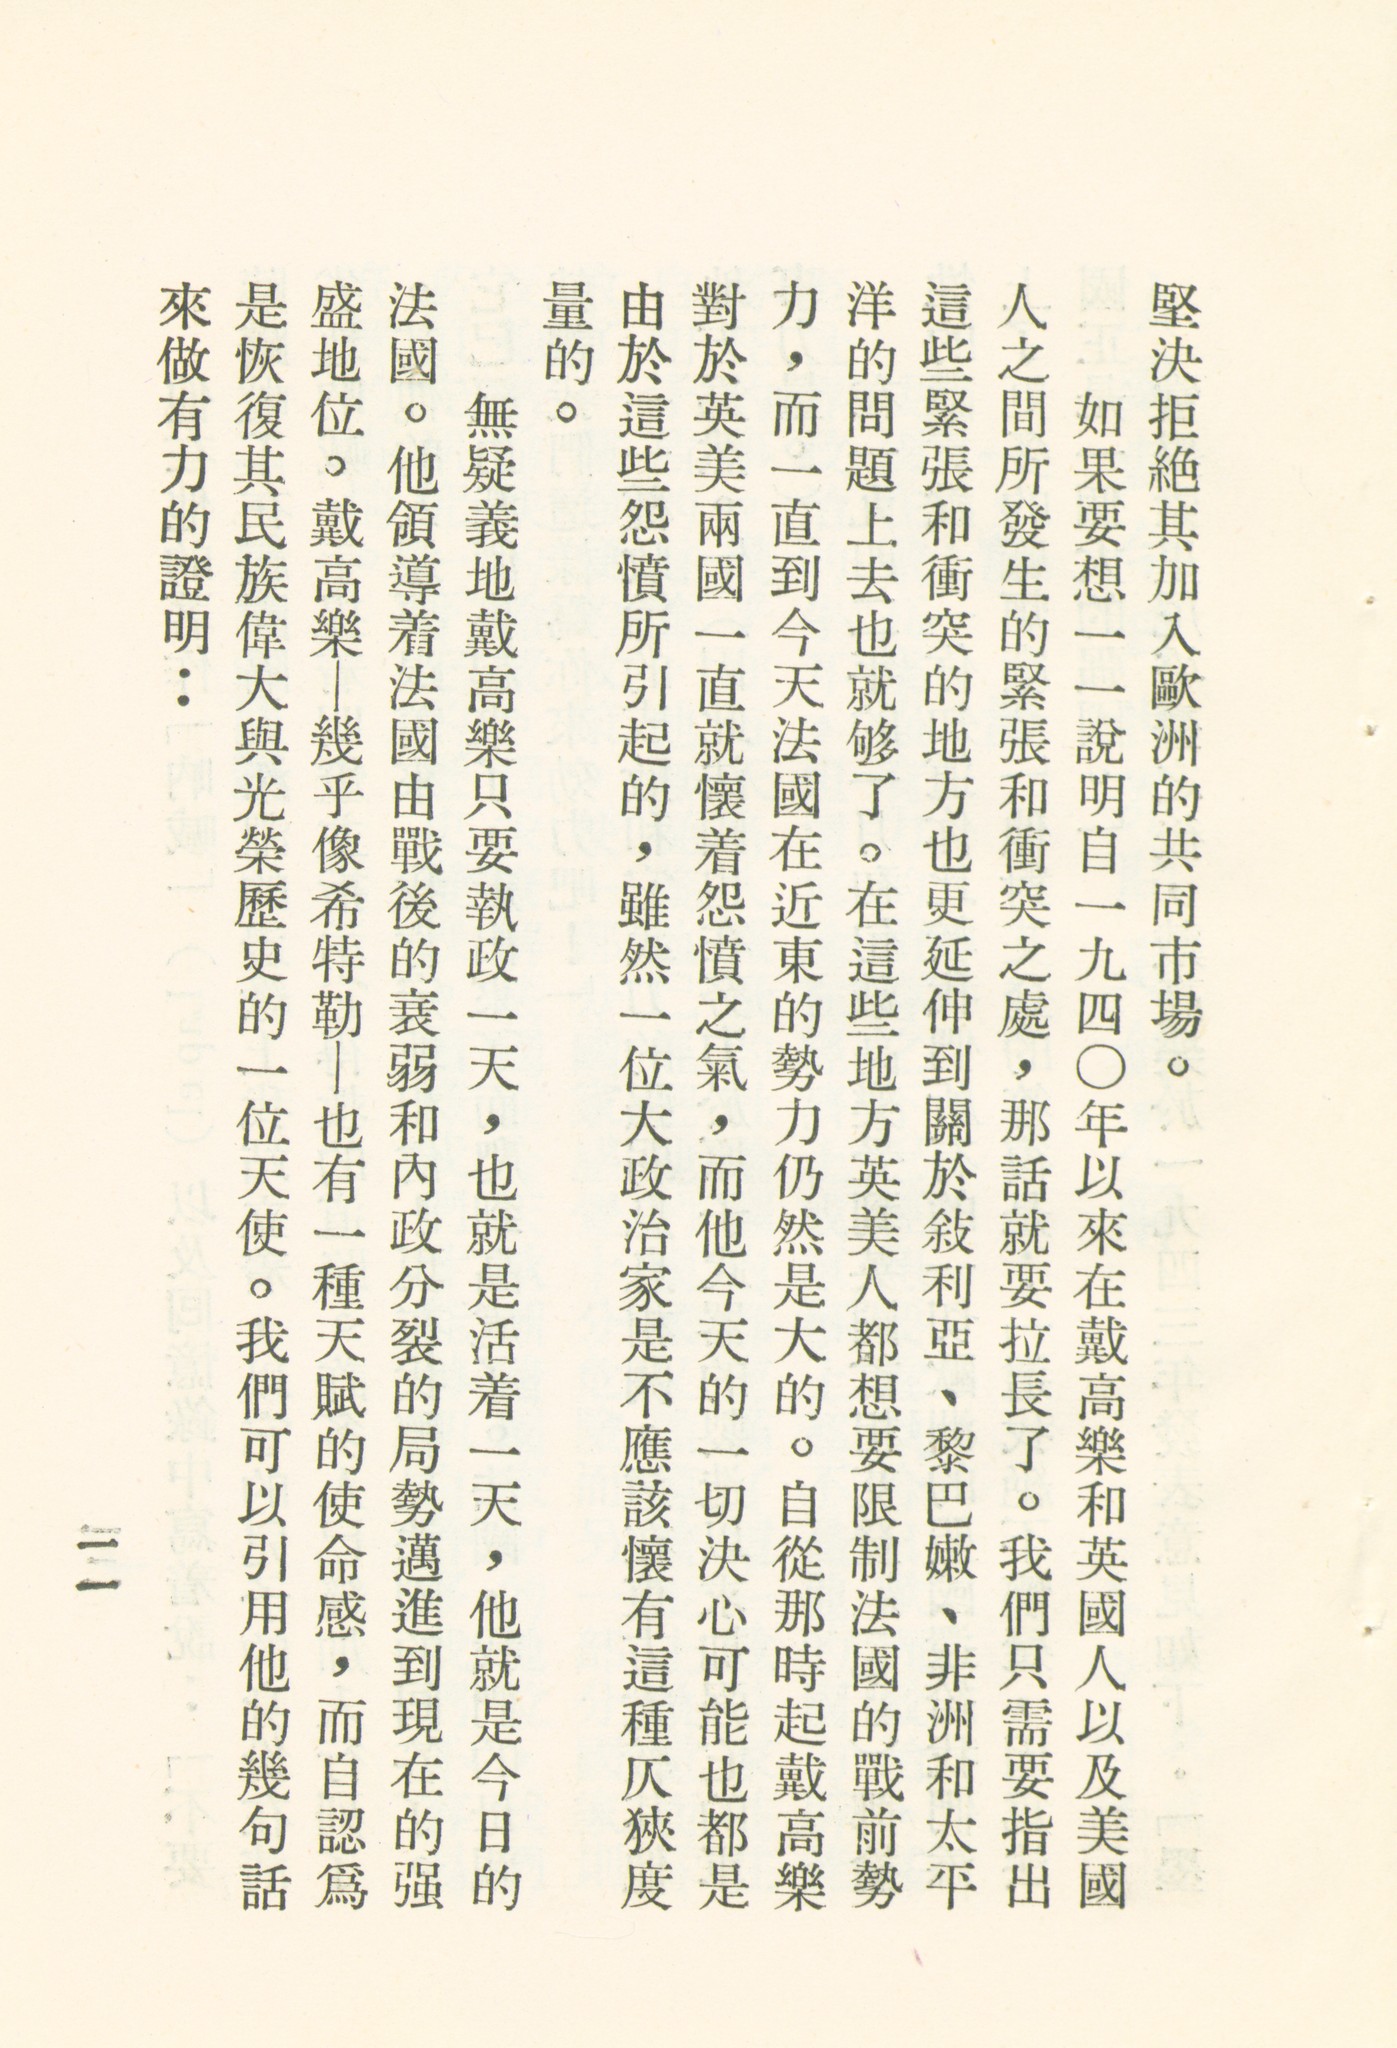 堅決拒絕其加入歐洲的共同市場。
如果要想一一說明自一九四〇年以來在戴高樂和英國人以及美國
人之間所發生的緊張和衝突之處，那話就要拉長了。我們只需要指出
這些緊張和衝突的地方也更延伸到關於敍利亞、黎巴嫩、非洲和太平
洋的問題上去也就够了。在這些地方英美人都想要限制法國的戰前勢
力，而一直到今天法國在近東的勢力仍然是大的。自從那時起戴高樂
對於英美兩國一直就懷着怨憤之氣，而他今天的一切決心可能也都是
由於這些怨憤所引起的，雖然一位大政治家是不應該懷有這種仄狹度
量的。
無疑義地戴高樂只要執政一天，也就是活着一天，他就是今日的
法國。他領導着法國由戰後的衰弱和內政分裂的局勢邁進到現在的强
盛地位。戴高樂—幾乎像希特勒—也有一種天賦的使命感，而自認爲
是恢復其民族偉大與光榮歷史的一位天使。我們可以引用他的幾句話
來做有力的證明：